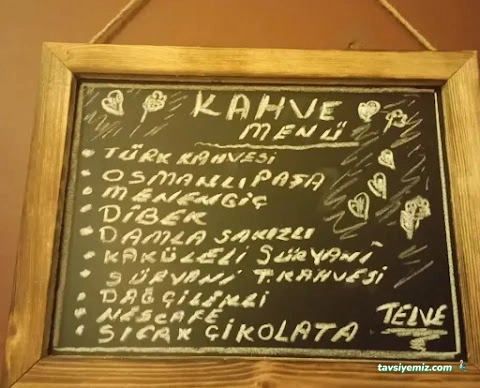 KAHVE
MENÜ
• TÜRK KAHVESİ
• OSMANLI PAŞA
• MENENGİÇ
• DİBEK
• DAMLA SAKIZLI
• KAKÜLELİ SÜRYANİ
• SÜRYANİ T. KAHVESİ
• DAĞ ÇİLEKLİ
• NESCAFE
• SICAK ÇİKOLATA
TELVE
tavsiyemiz.com